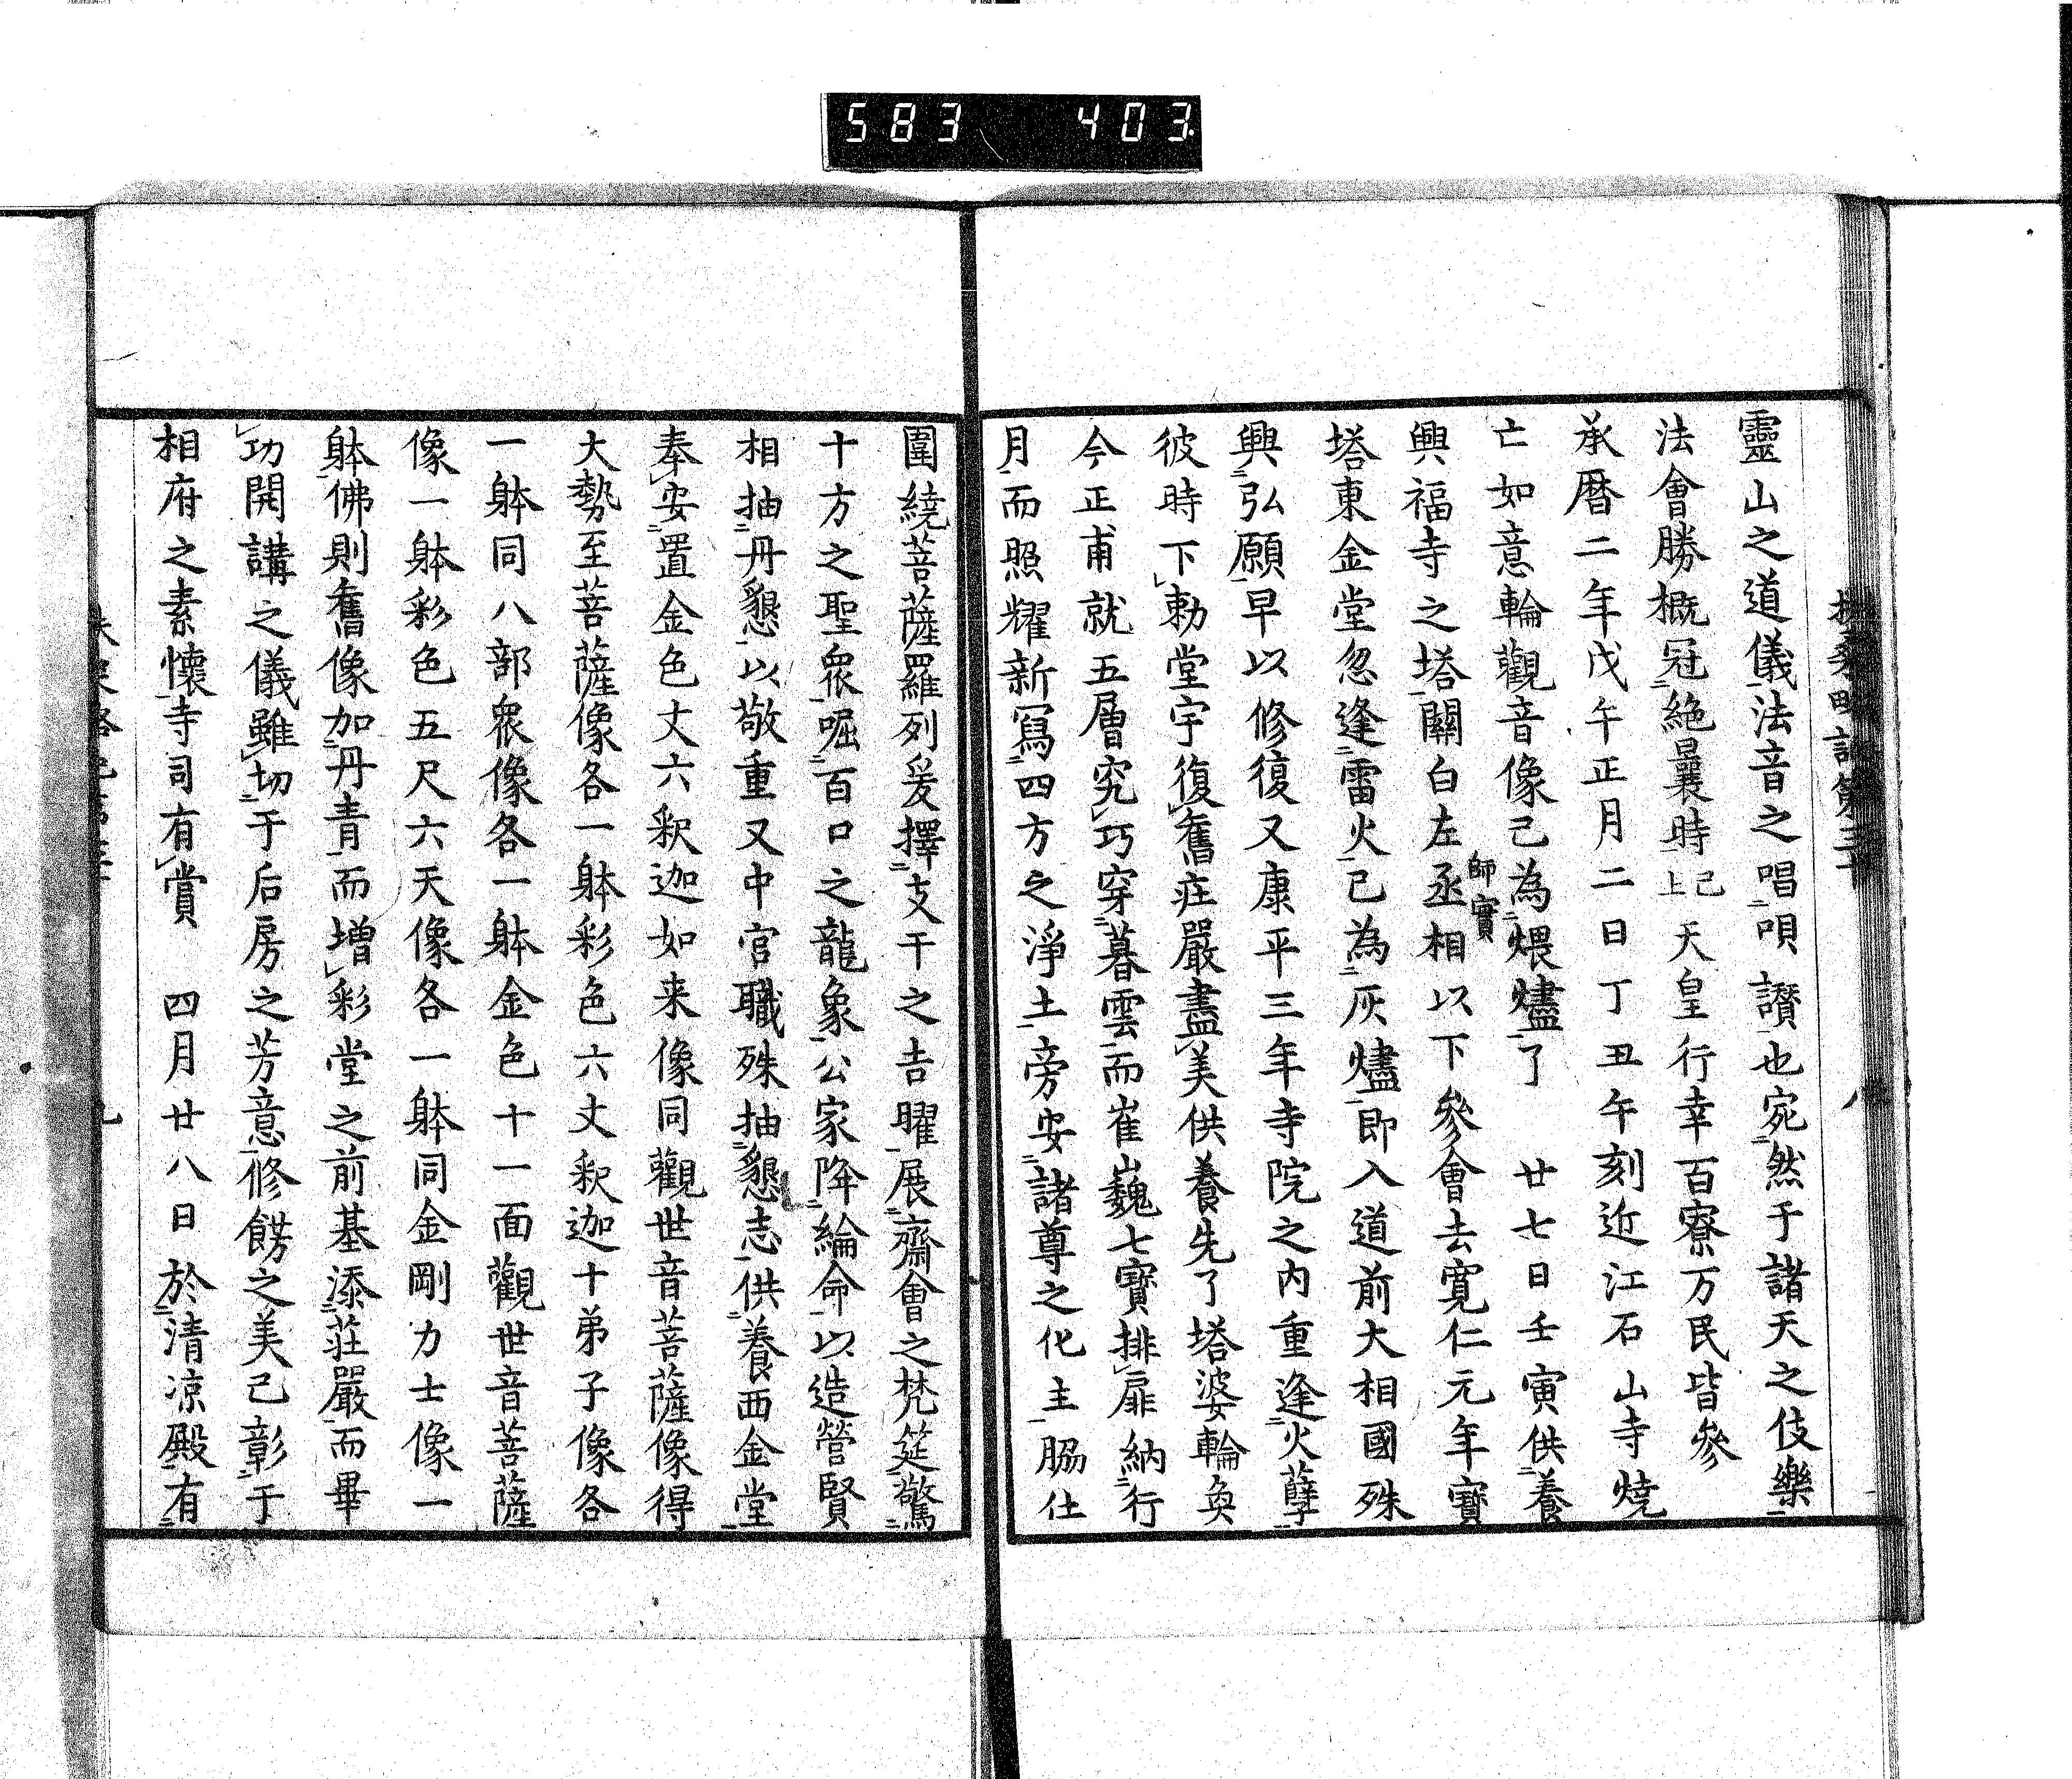 583 403
靈山之道儀法音之唱唄讃也宛然于諸天之伎樂
法會勝概冠絶曩時已上天皇行幸百寮万民皆參
承暦二年戊午正月二日丁丑午刻近江石山寺燒
亡如意輪觀音像已為煨燼了 廿七日壬寅供養
興福寺之塔關白左丞相師實以下參會去寛仁元年寳
塔東金堂忽逢雷火已為灰燼即入道前大相國殊
興弘願早以修復又康平三年寺院之内重逢火孽
彼時下勅堂宇復舊莊嚴盡美供養先了塔婆輪奐
今正甫就五層究巧穿暮雲而崔巍七寳排扉納行
月而照耀新冩四方之淨土旁安諸尊之化主脇仕
圍繞菩薩羅列爰擇支干之吉曜展齋會之梵筵驚
十方之聖衆啒百口之龍象公家降綸命以造營賢
相抽丹懇以敬重又中宮職殊抽懇志供養西金堂
奉安置金色丈六釈迦如来像同觀世音菩薩像得
大勢至菩薩像各一躰彩色六丈釈迦十弟子像各
一躰同八部衆像各一躰金色十一面觀世音菩薩
像一躰彩色五尺六天像各一躰同金剛力士像一
躰佛則舊像加丹青而增彩堂之前基添莊嚴而畢
功開講之儀雖切于后房之芳意修餝之美已彰于
相府之素懷寺司有賞 四月廿八日於清凉殿有